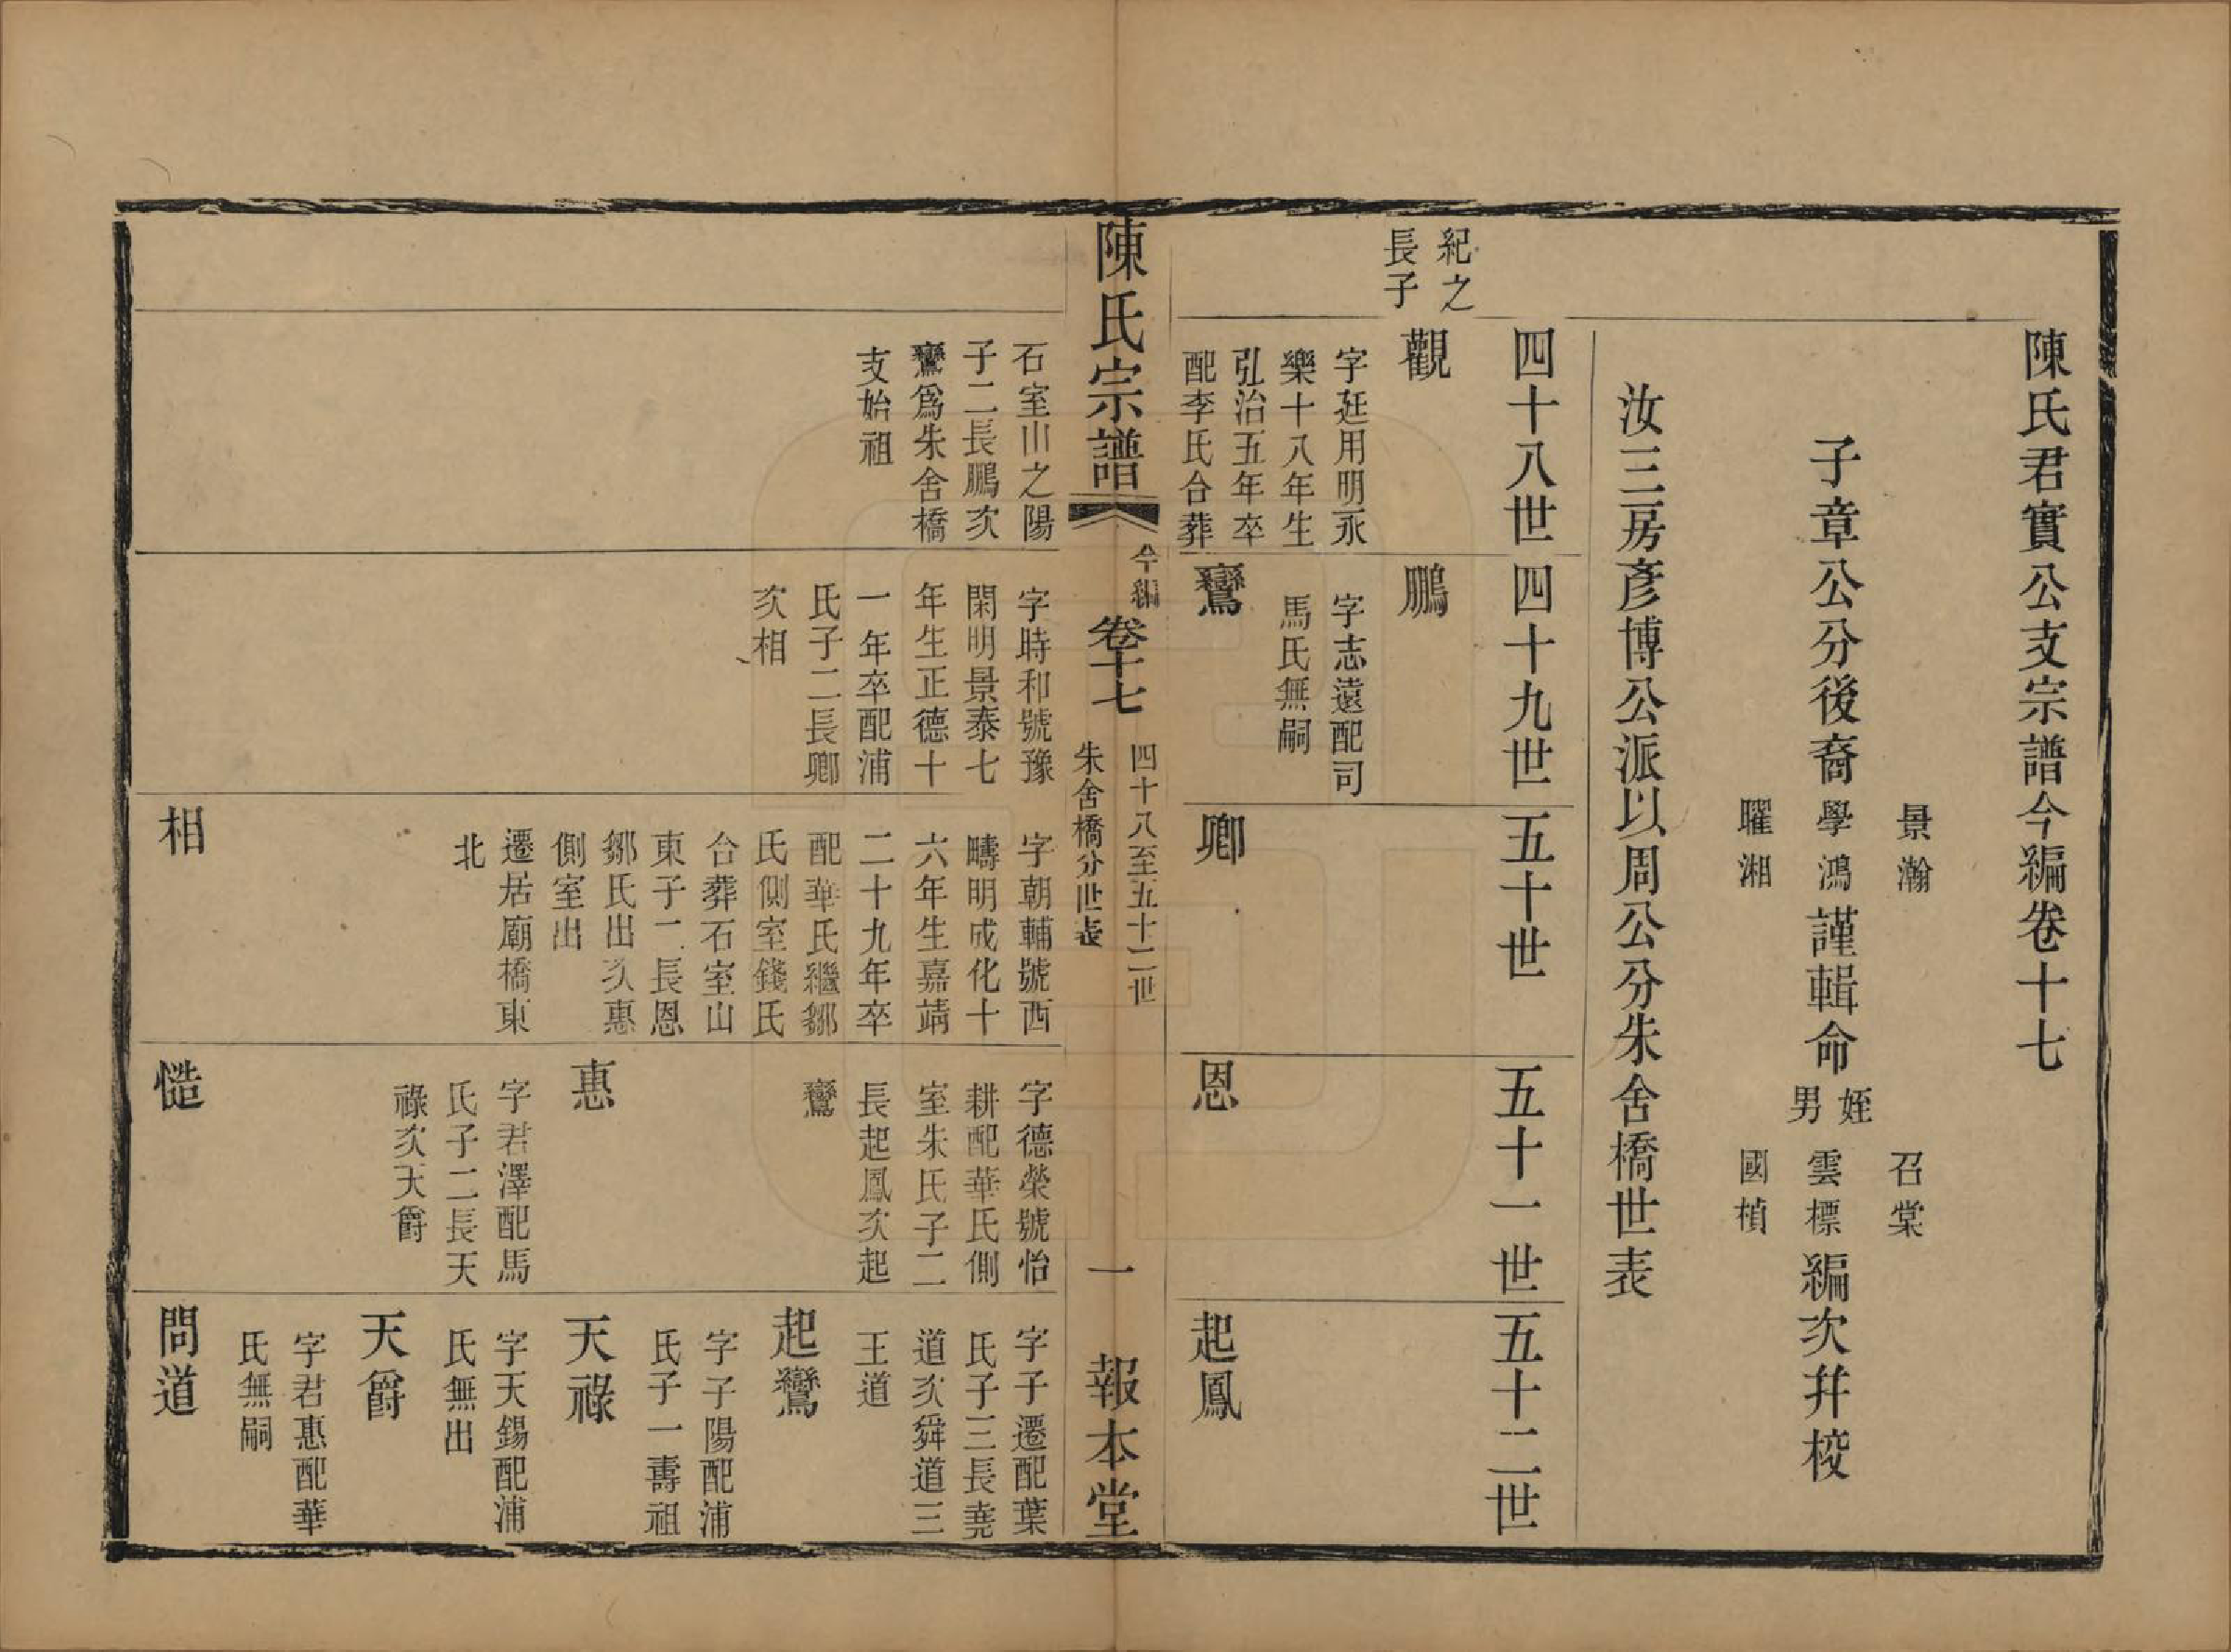 陳氏君實公支宗譜今編卷十七
景瀚
子章公分後裔學鴻謹輯命姪男雲標編次幷校
曜湘
召棠
國楨
汝三房彥博公派以周公分朱舍橋世表
四十八世
四十九世
五十世
五十一世
五十二世
紀之
長子
觀
字廷用明永
樂十八年生
弘治五年卒
配李氏合葬
鵬
字志遠配司
馬氏無嗣
鸞
卿
恩
起鳳
陳氏宗譜
今編
卷十七
四十八至五十二世
朱舍橋分世表
一
報本堂
石室山之陽
子二長鵬次
鸞爲朱舍橋
支始祖
字時和號豫
閑明景泰七
年生正德十
一年卒配浦
氏子二長卿
次相
字朝輔號西
疇明成化十
六年生嘉靖
二十九年卒
配華氏繼鄒
氏側室錢氏
合葬石室山
東子二長恩
鄒氏出次惠
側室出
遷居廟橋東
北
相
字德榮號怡
耕配華氏側
室朱氏子二
長起鳳次起
鸞
惠
字君澤配馬
氏子二長天
祿次天爵
慥
字子遷配葉
氏子三長堯
道次舜道三
王道
起鸞
字子陽配浦
氏子一壽祖
天祿
字天錫配浦
氏無出
天爵
字君惠配華
氏無嗣
問道